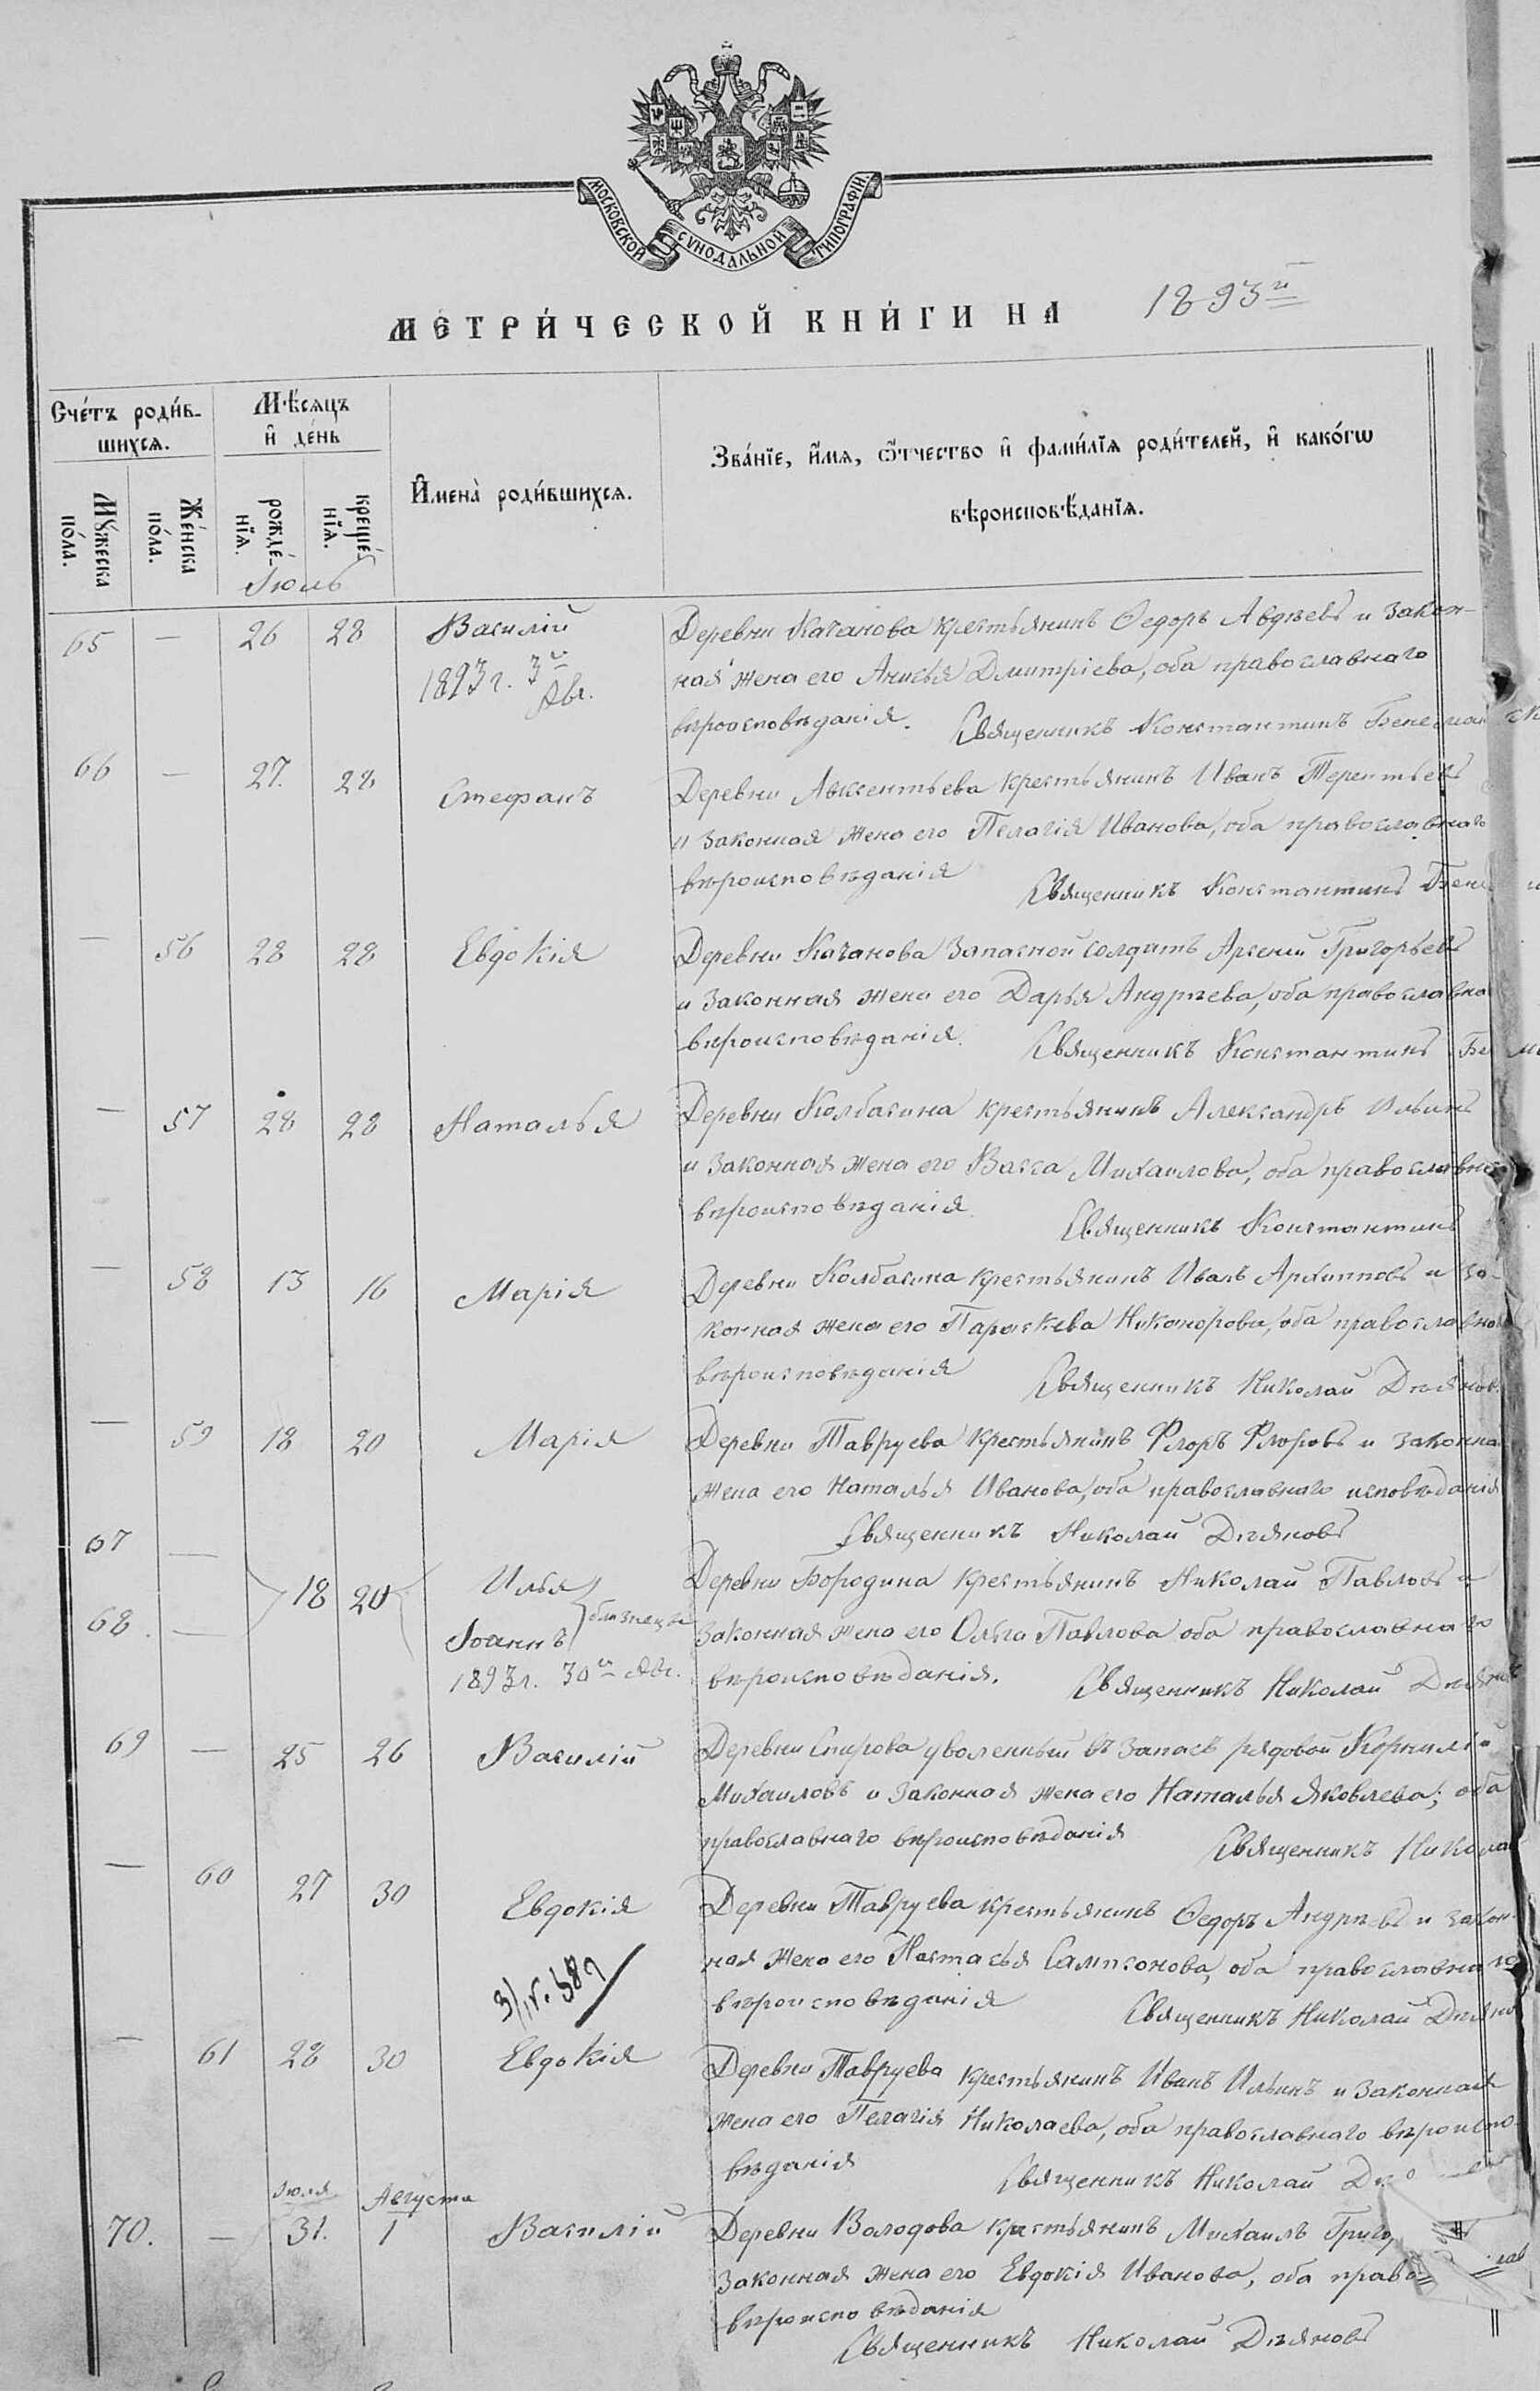 МОСКОВСКОЙ СѴНОДАЛЬНОЙ ТИПОГРАФІИ.
МЕТРИ́ЧЕСКОЙ КНИ́ГИ НА 1893й
Сче́тъ роди́вшихсѧ.
Мѣ́сѧцъ и҆ де́нь
И҆мена̀ роди́вшихсѧ.
Зва́нїе, и҆́мѧ, ѻ҆́тчество и҆ фами́лїѧ роди́телей, и҆ како́гѡ
вѣроисповѣ́данїѧ.
Мꙋ́жеска по́ла.
Же́нска по́ла.
рожде́нїѧ.
креще́нїѧ.
Іюль
65 — 26 28 Василій Деревни Качанова крестьянинъ Ѳедоръ Авдѣевъ и закон-
1893 г. 3й Авг. ная жена его Анисья Дмитріева, оба православнаго
вѣроисповѣданія. Священникъ Константинъ
66 — 27. 28 Стефанъ Деревни Авксентьева крестьянинъ Иванъ Терентьевъ
и законная жена его Пелагія Иванова, оба православнаго
вѣроисповѣданія Священникъ Константинъ
— 56 28 28 Евдокія Деревни Качанова запасной солдатъ Арсеній Григорьевъ
и законная жена его Дарья Андреева, оба православна
вѣроисповѣданія. Священникъ Константинъ
— 57 28 28 Наталья Деревни Колбасина крестьянинъ Александръ Ильинъ
и законная жена его Васса Михаилова, оба православна
вѣроисповѣданія. Священникъ Константинъ
— 58 13 16 Марія Деревни Колбасина крестьянинъ Иванъ Архиповъ и за-
конная жена его Параскева Никанорова, оба православна
вѣроисповѣданія Священникъ Николай Дѣяновъ
— 59 18 20 Марія Деревни Тавруева крестьянинъ Флоръ Флоровъ и законна
жена его Наталья Иванова, оба православнаго исповѣданія
Священникъ Николай Дѣяновъ
67 — 18 20 Илья Деревни Бородина крестьянинъ Николай Павловъ и
68. — Іоаннъ близнецы законная жена его Ольга Павлова оба православнаго
1893 г. 30й Авг. вѣроисповѣданія. Священникъ Николай
69 — 25 26 Василій Деревни Спирова уволенный въ запасъ рядовой Корнилій
Михаиловъ и законная жена его Наталья Яковлева; оба
православнаго вѣроисповѣданія Священникъ Никола
— 60 27 30 Евдокія Деревни Тавруева крестьянинъ Ѳедоръ Андреевъ и закон-
ная жена его Настасья Сампсонова, оба православнаго
вѣроисповѣданія Священникъ Николай
— 61 28 30 Евдокія Деревни Тавруева крестьянинъ Иванъ Ильинъ и законная
жена его Пелагія Николаева, оба православнаго вѣроиспо-
вѣданія Священникъ Николай
Іюля Августа
70. — 31. 1 Василій Деревни Володова крестьянинъ Михаилъ Григо
законная жена его Евдокія Иванова, оба право=
вѣроисповѣданія
Священникъ Николай Дѣяновъ